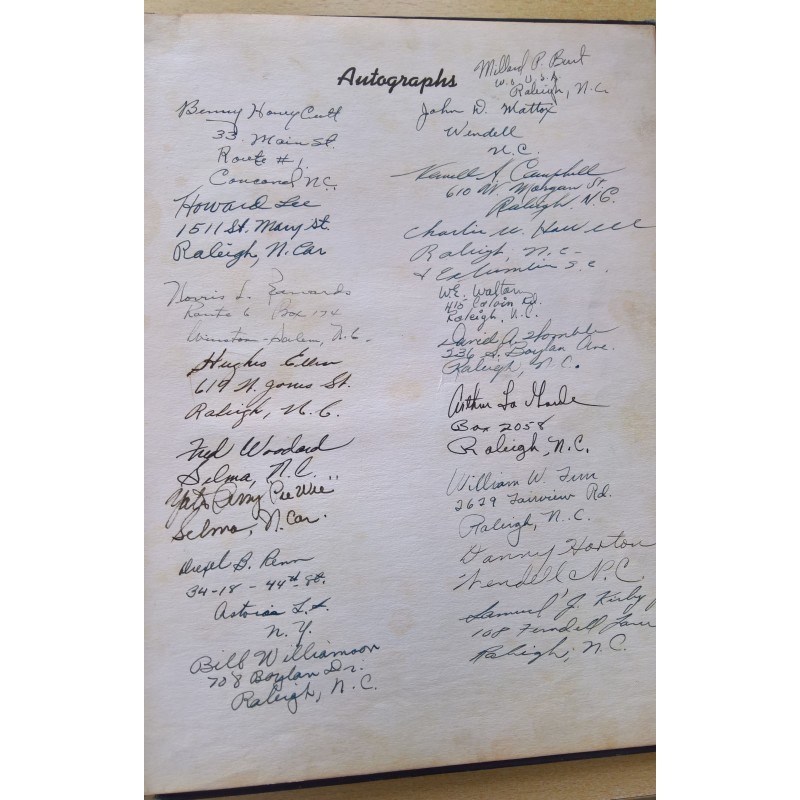 Autographs
Benny Honeycutt
33 Main St.
Route #1
Concord N.C.
Howard Lee
1511 St. Mary St.
Raleigh, N. Car
Norris L. Edwards
Route 6 Box 174
Winston-Salem, N.C.
Hughes
619 N. Jones St.
Raleigh, N.C.
Fred Woodard
Selma, N.C.
"Pee Wee"
Selma, N. Car.
Drexel B. Penn
34-18-44th St.
Astoria L.I.
N.Y.
Bill Williamson
708 Boylan Dr.
Raleigh, N.C.
Millard P. Burt
Raleigh, N.C.
John D. Mattox
Wendell
N.C.
A. Campbell
610 W. Morgan St
Raleigh, N.C.
Charlie W.
Raleigh, N.C.
& Columbia S.C.
W.E. Walton
Rd.
Raleigh, N.C.
David A.
236 S. Boylan Ave.
Raleigh, N.C.
Arthur La
Box 2058
Raleigh, N.C.
William W.
2629 Fairview Rd.
Raleigh, N.C.
Danny Horton
Wendell N.C.
Samuel J. Kirby
108 Ferndell Lane
Raleigh, N.C.